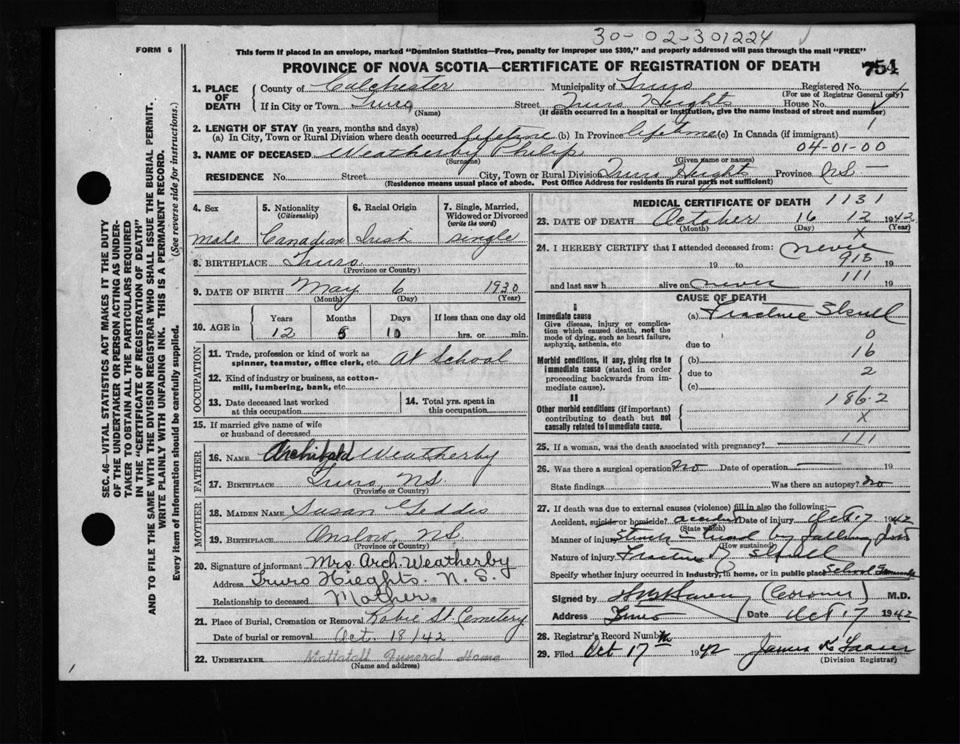 30-02-301224
FORM 6
This form if placed in an envelope, marked "Dominion Statistics—Free, penalty for improper use $300," and properly addressed will pass through the mail "FREE"
PROVINCE OF NOVA SCOTIA—CERTIFICATE OF REGISTRATION OF DEATH
754
1. PLACE OF DEATH
County of Colchester Municipality of Truro Registered No.
(For use of Registrar General only)
If in City or Town Truro Street Truro Heights House No.
(Name) (If death occurred in a hospital or institution, give the name instead of street and number)
2. LENGTH OF STAY (in years, months and days) 1
(a) In City, Town or Rural Division where death occurred lifetime (b) In Province lifetime (c) In Canada (if immigrant)
3. NAME OF DECEASED Weatherby Philip 04-01-00
(Surname) (Given name or names)
RESIDENCE No. Street City, Town or Rural Division Truro Heights Province N.S.
(Residence means usual place of abode. Post Office Address for residents in rural parts not sufficient)
SEC. 46—VITAL STATISTICS ACT MAKES IT THE DUTY
OF THE UNDERTAKER OR PERSON ACTING AS UNDER-
TAKER TO OBTAIN ALL THE PARTICULARS REQUIRED
IN THE "CERTIFICATE OF REGISTRATION OF DEATH"
AND TO FILE THE SAME WITH THE DIVISION REGISTRAR WHO SHALL ISSUE THE BURIAL PERMIT.
WRITE PLAINLY WITH UNFADING INK. THIS IS A PERMANENT RECORD.
Every item of information should be carefully supplied. (See reverse side for instructions.)
4. Sex 5. Nationality 6. Racial Origin 7. Single, Married,
(Citizenship) Widowed or Divorced
(write the word)
male Canadian Irish single
8. BIRTHPLACE Truro
(Province or Country)
9. DATE OF BIRTH May 6 1930
(Month) (Day) (Year)
10. AGE in Years Months Days If less than one day old
12 5 10 hrs. or min.
OCCUPATION
11. Trade, profession or kind of work as
spinner, teamster, office clerk, etc. At School
12. Kind of industry or business, as cotton-
mill, lumbering, bank, etc.
13. Date deceased last worked
at this occupation
14. Total yrs. spent in
this occupation
15. If married give name of wife
or husband of deceased
FATHER
16. NAME Archibald Weatherby
17. BIRTHPLACE Truro, N.S.
(Province or Country)
MOTHER
18. MAIDEN NAME Susan Geddis
19. BIRTHPLACE Onslow, N.S.
(Province or Country)
20. Signature of informant Mrs. Arch. Weatherby
Address Truro Hieghts. N.S.
Relationship to deceased Mother
21. Place of Burial, Cremation or Removal Robie St. Cemetery
Date of burial or removal Oct. 18/42
22. UNDERTAKER Mattatall Funeral Home
(Name and address)
MEDICAL CERTIFICATE OF DEATH 1131
23. DATE OF DEATH October 16 12 1942
(Month) (Day) (Year)
X
24. I HEREBY CERTIFY that I attended deceased from: never
913
19 to 19
111
and last saw h alive on never 19
CAUSE OF DEATH
I
Immediate cause (a) Fracture Skull
Give disease, injury or complica-
tion which caused death, not the
mode of dying, such as heart failure,
asphyxia, asthenia, etc
due to 0
Morbid conditions, if any, giving rise to
immediate cause (stated in order
proceeding backwards from im-
mediate cause).
(b) 16
due to 2
(c)
II
186.2
Other morbid conditions (if important)
contributing to death but not
causally related to immediate cause.
X
111
25. If a woman, was the death associated with pregnancy?
26. Was there a surgical operation no Date of operation — 19
State findings Was there an autopsy? no
27. If death was due to external causes (violence) fill in also the following:
Accident, suicide or homicide? accident Date of injury Oct 17 1942
(State which)
Manner of injury Struck head by falling
(How sustained)
Nature of injury Fracture of Skull
Specify whether injury occurred in industry, in home, or in public place School
Signed by (Coroner) M.D.
Address Truro Date Oct 17 1942
28. Registrar's Record Number
29. Filed Oct 17th 1942 James K
(Division Registrar)